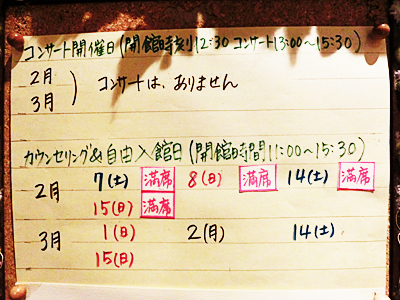 コンサート開催日(開館時刻12:30 コンサート13:00~15:30)
2月
3月 ) コンサートは、ありません
カウンセリング&自由入館日(開館時間11:00~15:30)
2月 7(土) 満席 8(日) 満席 14(土) 満席
15(日) 満席
3月 1(日) 2(月) 14(土)
15(日)